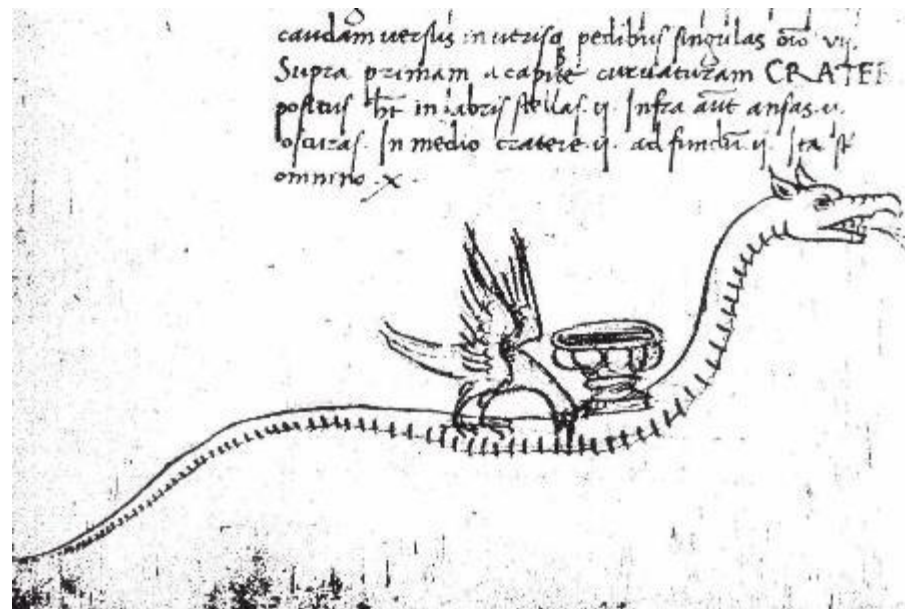 caudam uersus in utrisq pedibus singulas oīo vij.
Supra primam a capite curuaturam CRATER
positus ht in labris stellas. ij. Infra aūt ansas. ij.
oscuras. In medio cratere. ij. ad fundū. ij. Ita st
omnino. x.